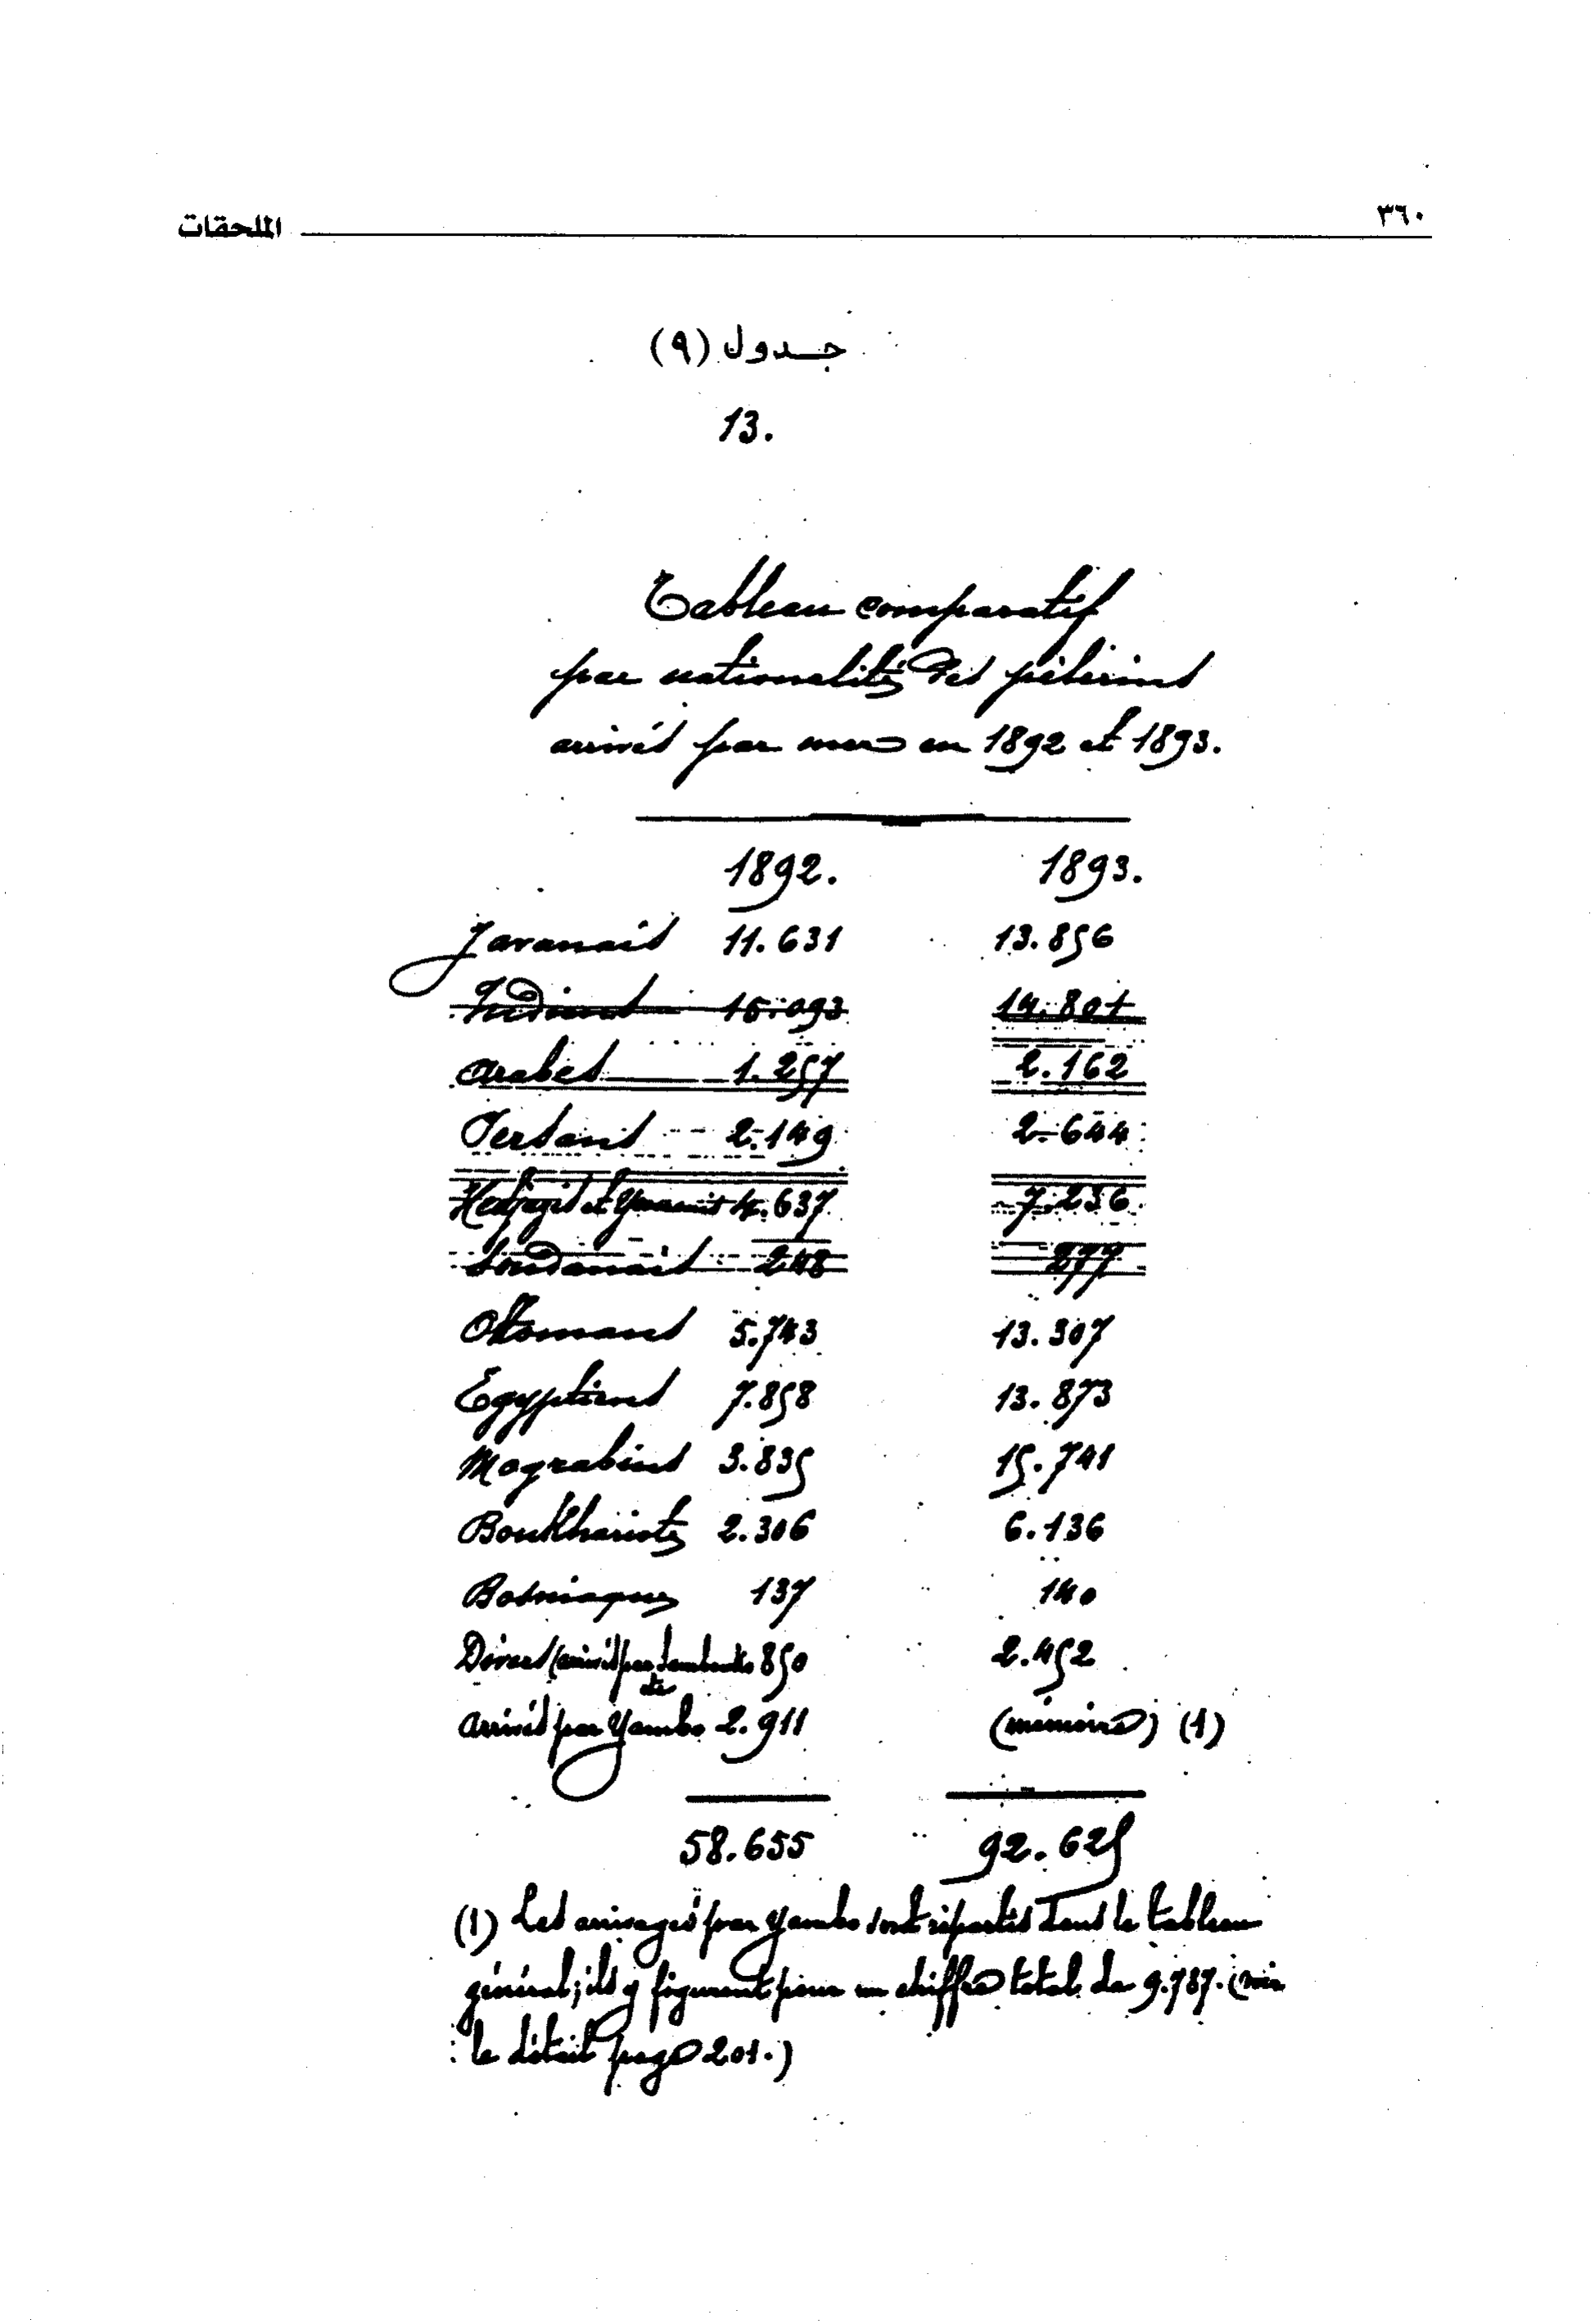 ٣٦٠
الملحقات
جدول (٩)
13.
Tableau comparatif
par nationalités des pèlerins
arrivés par mer en 1892 et 1893.
1892. 1893.
Javanais 11.631 13.856
Indiens 15.093 14.801
Arabes 1.257 2.162
Persans 2.149 2.644
Hedjazis et Yemenis 4.637 7.236
Soudanais 248 277
Ottomans 5.743 13.307
Egyptiens 7.858 13.873
Mograbins 3.835 15.741
Boukhariotes 2.306 6.136
Bosniaques 137 140
Divers (arrivés par sambouks etc 850 2.452
Arrivés par Yambo 2.911 (mémoire) (1)
58.655 92.625
(1) Les arrivages par Yambo sont répartis dans le tableau
général; ils y figurent pour un chiffre total de 9.787. (voir
le détail page 201.)